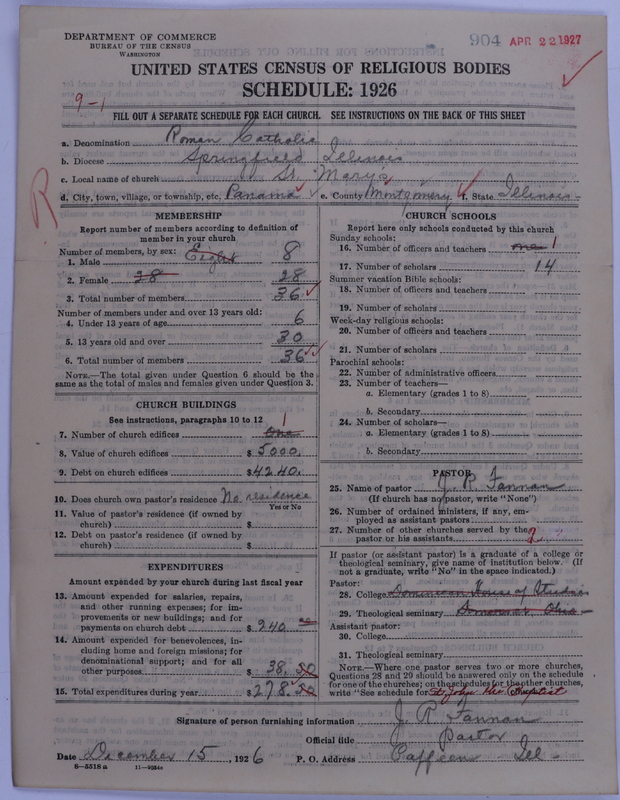 DEPARTMENT OF COMMERCE
BUREAU OF THE CENSUS
WASHINGTON
904 APR 22 1927
UNITED STATES CENSUS OF RELIGIOUS BODIES
SCHEDULE: 1926
9-1
FILL OUT A SEPARATE SCHEDULE FOR EACH CHURCH. SEE INSTRUCTIONS ON THE BACK OF THIS SHEET
a. Denomination Roman Catholic
b. Diocese Springfield Illinois
c. Local name of church St. Marys
d. City, town, village, or township, etc. Panama e. County Montgomery f. State Illinois
R
MEMBERSHIP
Report number of members according to definition of
member in your church
Number of members, by sex:
1. Male Eight 8
2. Female 28 28
3. Total number of members 36
Number of members under and over 13 years old:
4. Under 13 years of age 6
5. 13 years old and over 30
6. Total number of members 36
NOTE.—The total given under Question 6 should be the
same as the total of males and females given under Question 3.
CHURCH BUILDINGS
See instructions, paragraphs 10 to 12
7. Number of church edifices One 1
8. Value of church edifices $ 5000.
9. Debt on church edifices $ 4240.
10. Does church own pastor's residence No residence
Yes or No
11. Value of pastor's residence (if owned by
church) $
12. Debt on pastor's residence (if owned by
church) $
EXPENDITURES
Amount expended by your church during last fiscal year
13. Amount expended for salaries, repairs,
and other running expenses; for im-
provements or new buildings; and for
payments on church debt $ 240.00
14. Amount expended for benevolences, in-
cluding home and foreign missions; for
denominational support; and for all
other purposes $ 38.50
15. Total expenditures during year $ 278.50
CHURCH SCHOOLS
Report here only schools conducted by this church
Sunday schools:
16. Number of officers and teachers one 1
17. Number of scholars 14
Summer vacation Bible schools:
18. Number of officers and teachers
19. Number of scholars
Week-day religious schools:
20. Number of officers and teachers
21. Number of scholars
Parochial schools:
22. Number of administrative officers
23. Number of teachers—
a. Elementary (grades 1 to 8)
b. Secondary
24. Number of scholars—
a. Elementary (grades 1 to 8)
b. Secondary
PASTOR
25. Name of pastor J. R. Fannan
(If church has no pastor, write "None")
26. Number of ordained ministers, if any, em-
ployed as assistant pastors
27. Number of other churches served by the
pastor or his assistants
If pastor (or assistant pastor) is a graduate of a college or
theological seminary, give name of institution below. (If
not a graduate, write "No" in the space indicated.)
Pastor:
28. College Dominican House of Studies
29. Theological seminary Somerset Ohio
Assistant pastor:
30. College
31. Theological seminary
NOTE.—Where one pastor serves two or more churches,
Questions 28 and 29 should be answered only on the schedule
for one of the churches; on the schedules for the other churches,
write "See schedule for St. John the Baptist
Signature of person furnishing information J. R. Fannan
Official title Pastor
Date December 15, 1926 P. O. Address Coffeen Ill
8-5518 a